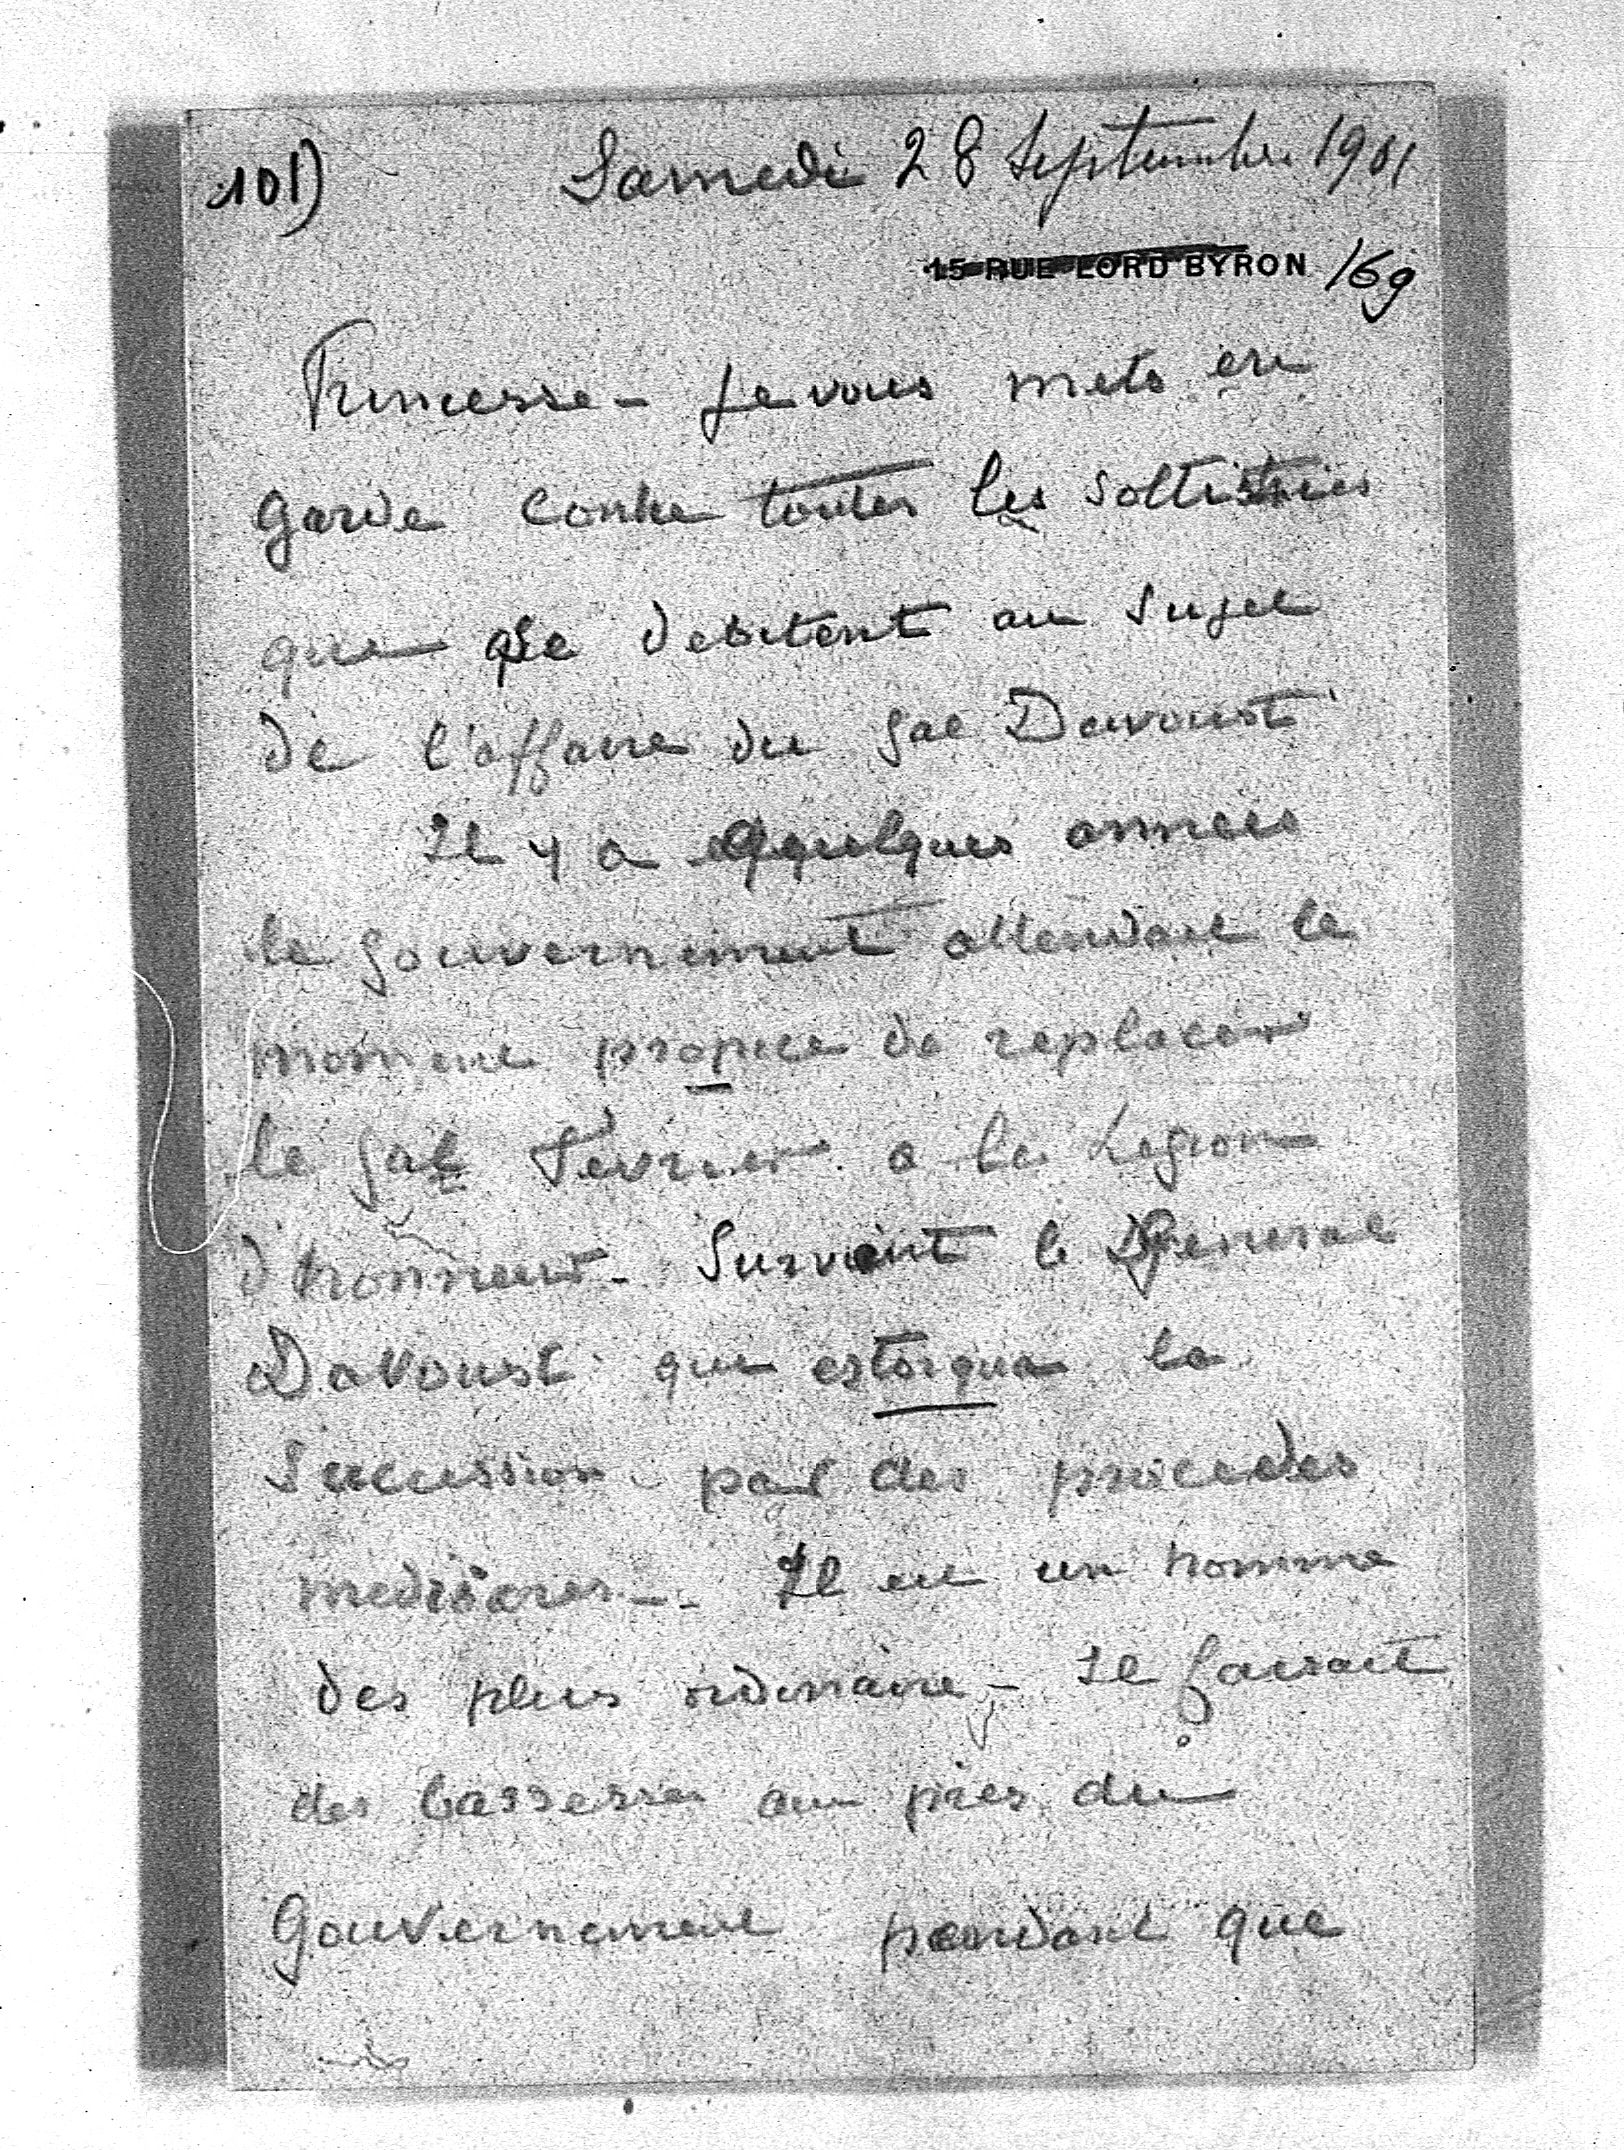 101) Samedi 28 Septembre 1901
15 RUE LORD BYRON 169
Princesse - Je vous mets en
Garde contre toutes les sottises
que se debitent au sujet
de l'affaire du Gal Davoust
Il y a quelques annees
le gouvernement attendait le
moment propice de replacer
le Gal Fevrier a la Legion
d'honneur. Survint le General
Davoust que estorqua la
succession par des procedes
Il est un homme
des plus ordinaire - Il faisait
des bassesses au pres du
Gouvernement pendant que